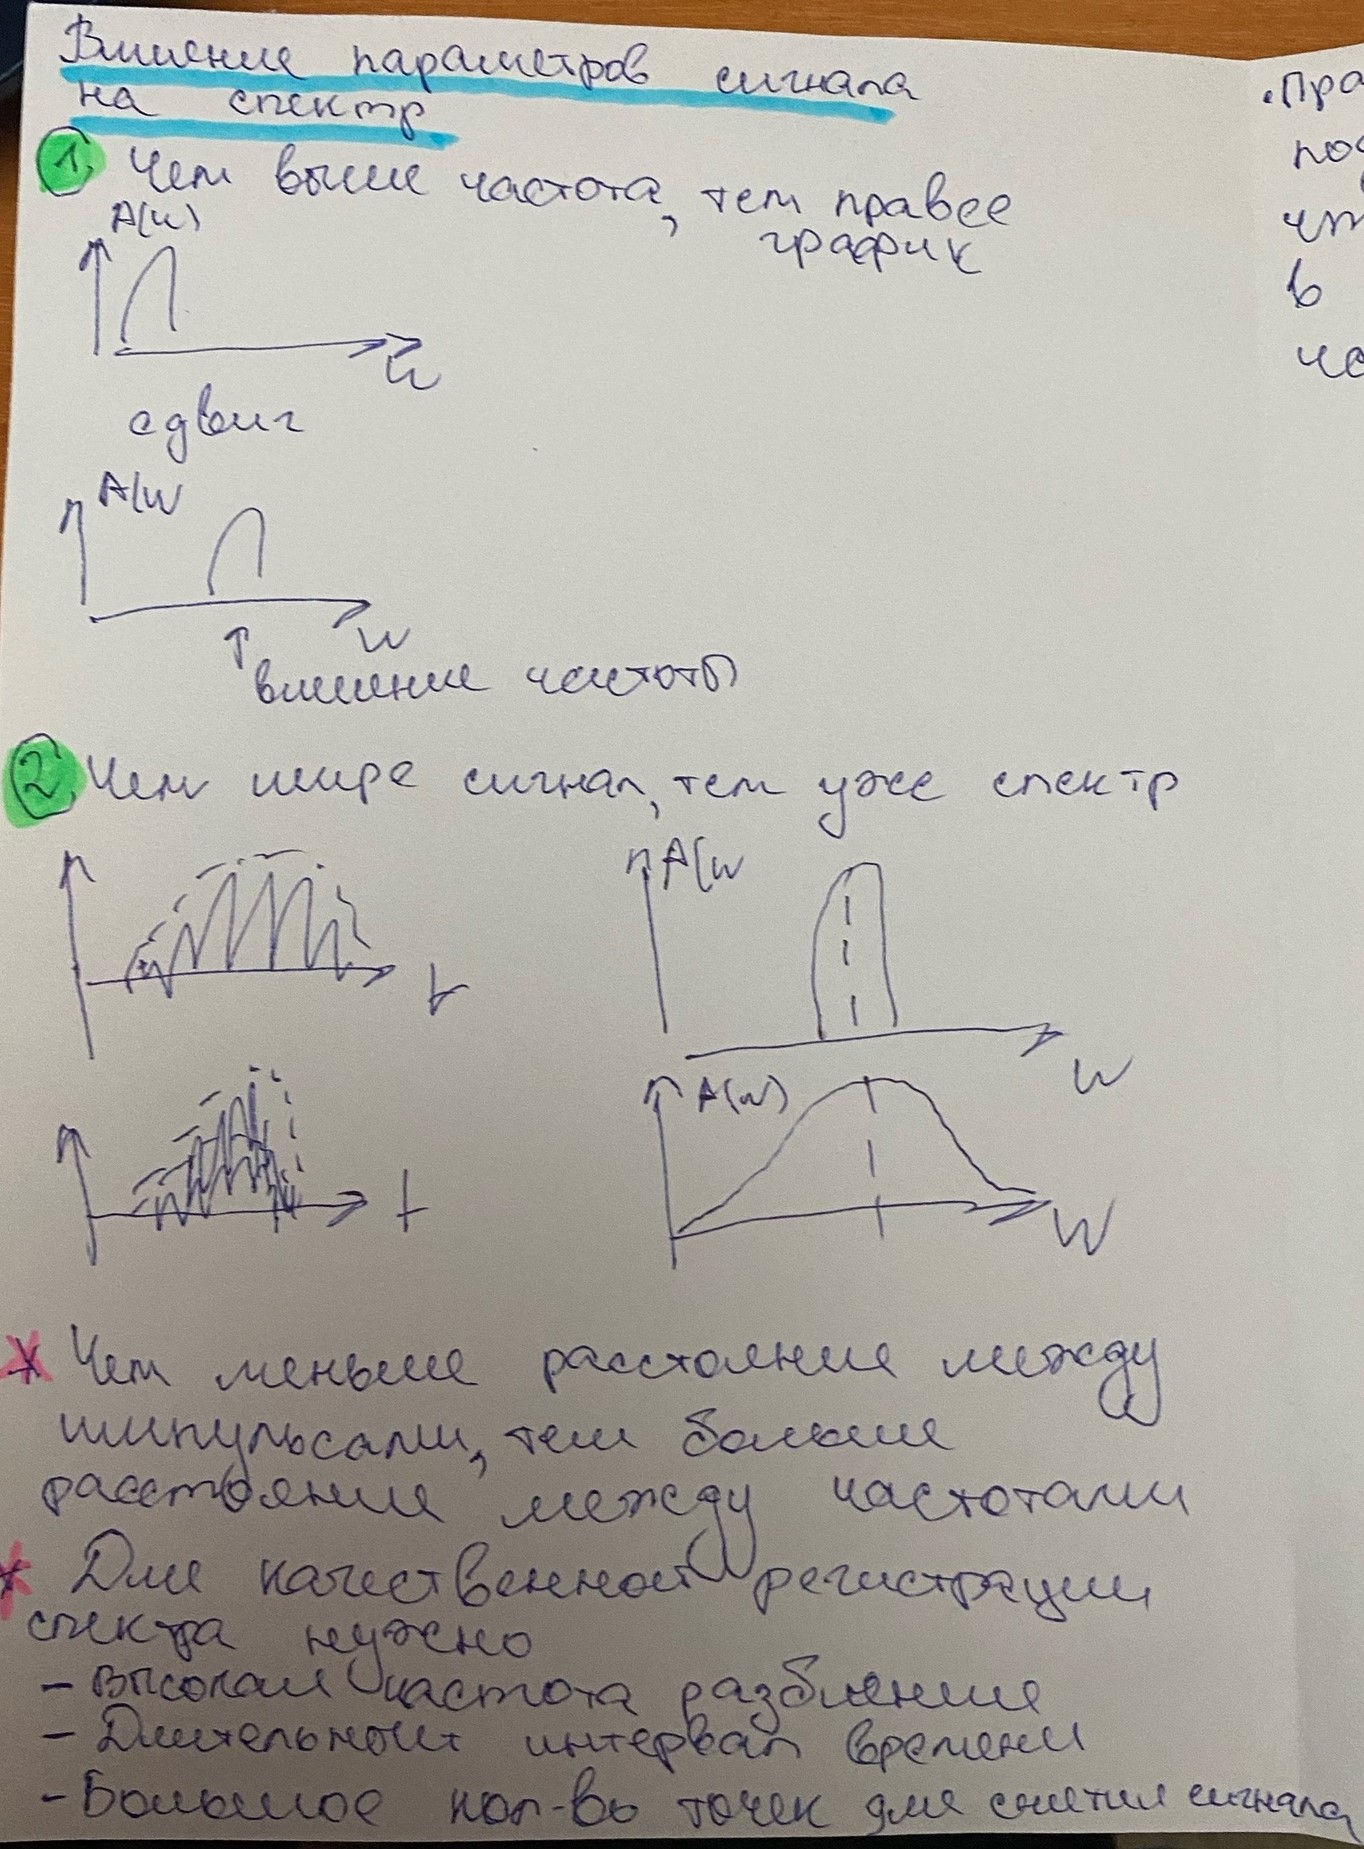 Влияние параметров сигнала
на спектр
1. Чем выше частота, тем правее
график
A(w)
w
сдвиг
A(w
w
↑
влияние частоты
2. Чем шире сигнал, тем уже спектр
t
A(w
w
t
A(w)
w
* Чем меньше расстояние между
импульсами, тем больше
расстояние между частотами
* Для качественной регистрации
спектра нужно
- Высокая частота разбиения
- Длительный интервал времени
- Большое кол-во точек для снятия сигнала
.Пра
под
чт
в
ча